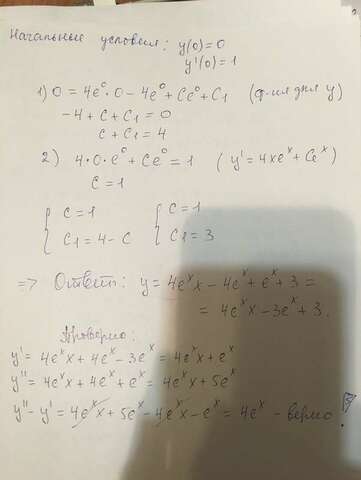 Начальные условия: y(0)=0
y'(0)=1
1) 0 = 4e⁰·0 - 4e⁰ + Ce⁰ + C₁ (ф-ла для y)
-4 + C + C₁ = 0
C + C₁ = 4
2) 4·0·e⁰ + Ce⁰ = 1 (y' = 4xeˣ + Ceˣ)
C = 1
{ C = 1 { C = 1
C₁ = 4 - C C₁ = 3
=> Ответ: y = 4eˣx - 4eˣ + eˣ + 3 =
= 4eˣx - 3eˣ + 3.
Проверю:
y' = 4eˣx + 4eˣ - 3eˣ = 4eˣx + eˣ
y'' = 4eˣx + 4eˣ + eˣ = 4eˣx + 5eˣ
y'' - y' = 4eˣx + 5eˣ - 4eˣx - eˣ = 4eˣ - верно!